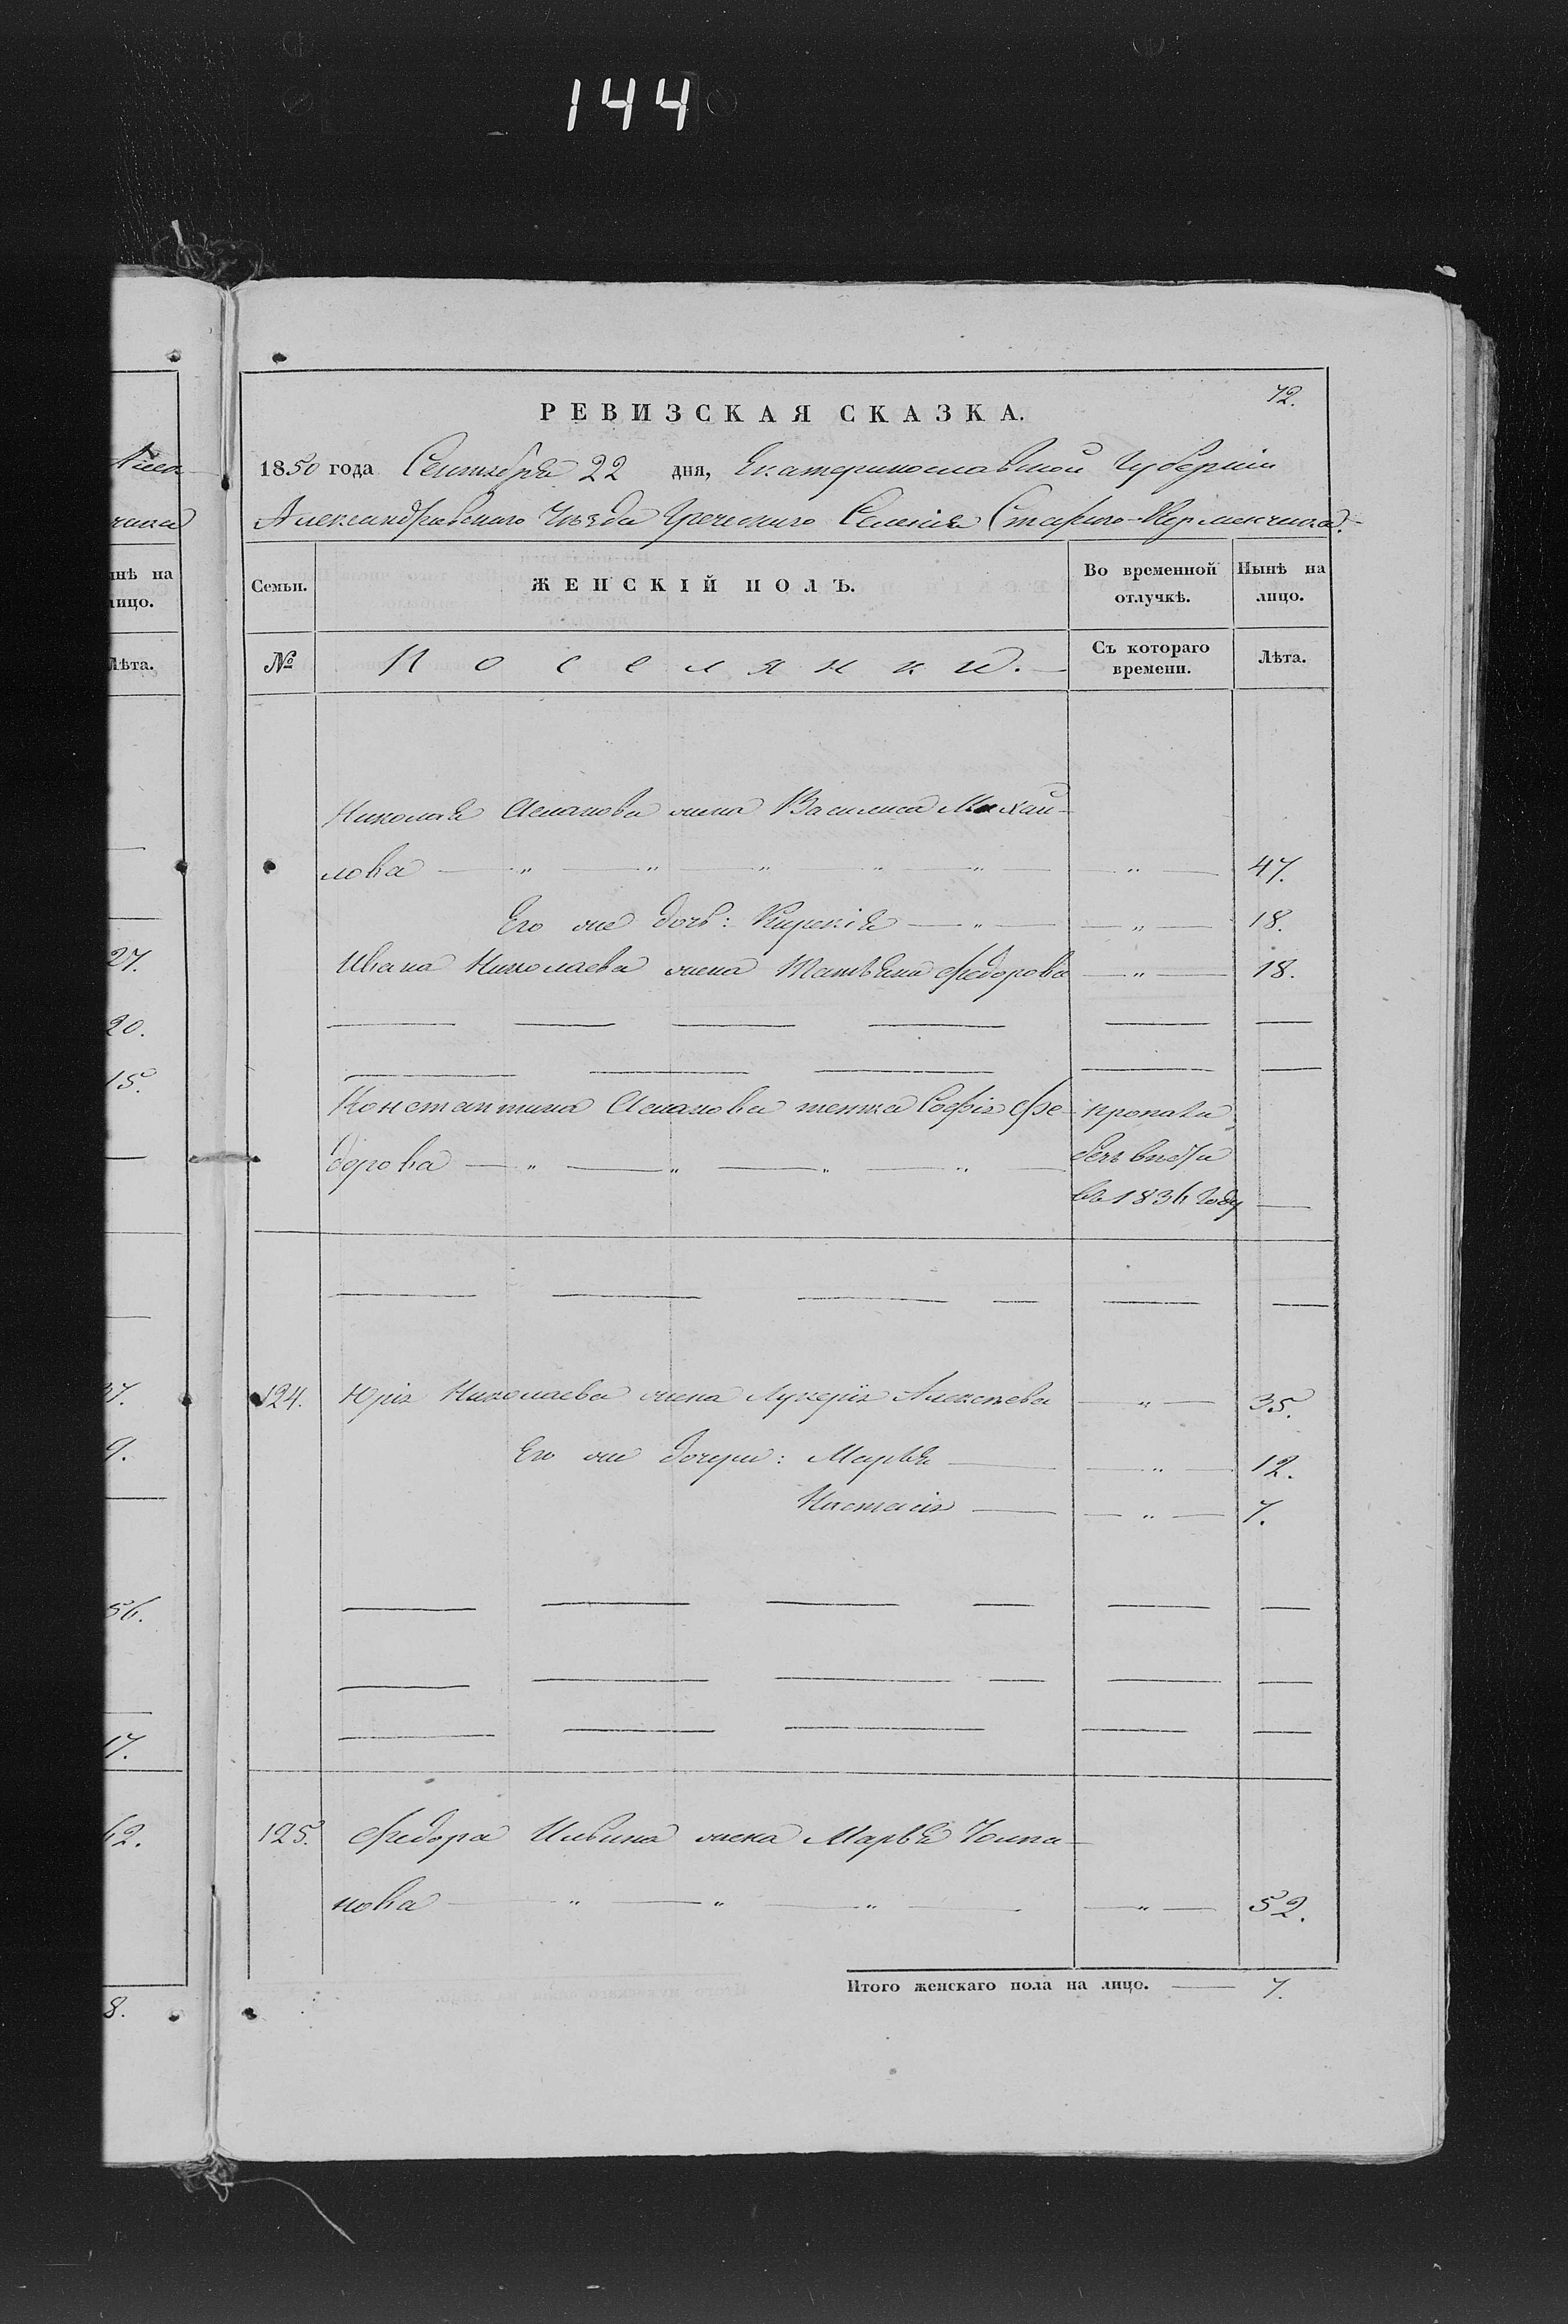 144
72.
РЕВИЗСКАЯ СКАЗКА.
1850 года Сентября 22 дня, Екатеринославской Губерніи
Александровскаго Уѣзда Греческаго Селенія Стараго-Керменчика.
нѣ на
лицо.
Лѣта.
27.
20.
15.
37.
9.
56.
17.
62.
8.
Семьи. ЖЕНСКІЙ ПОЛЪ. Во временной отлучкѣ. Нынѣ на лицо.
№ Поселянки. Съ котораго времени. Лѣта.
Николая Асланова жена Василиса Михай-
лова — " — " — " — " — " — — " — 47.
Его же дочь: Кирекія — " — — " — 18.
Ивана Николаева жена Татьяна Федорова — " — 18.
Константина Асланова женка Софія Фе- пропала
дорова — " — " — " — " — безъ вести
въ 1836 году —
124. Юрія Николаева жена Лукерія Алексѣева — " — 35.
Его же дочери: Марья — — " — 12.
Настасія — — " — 7.
125. Федора Ильина жена Марья
нова — " — " — " — — " — 52.
Итого женскаго пола на лицо. — 7.